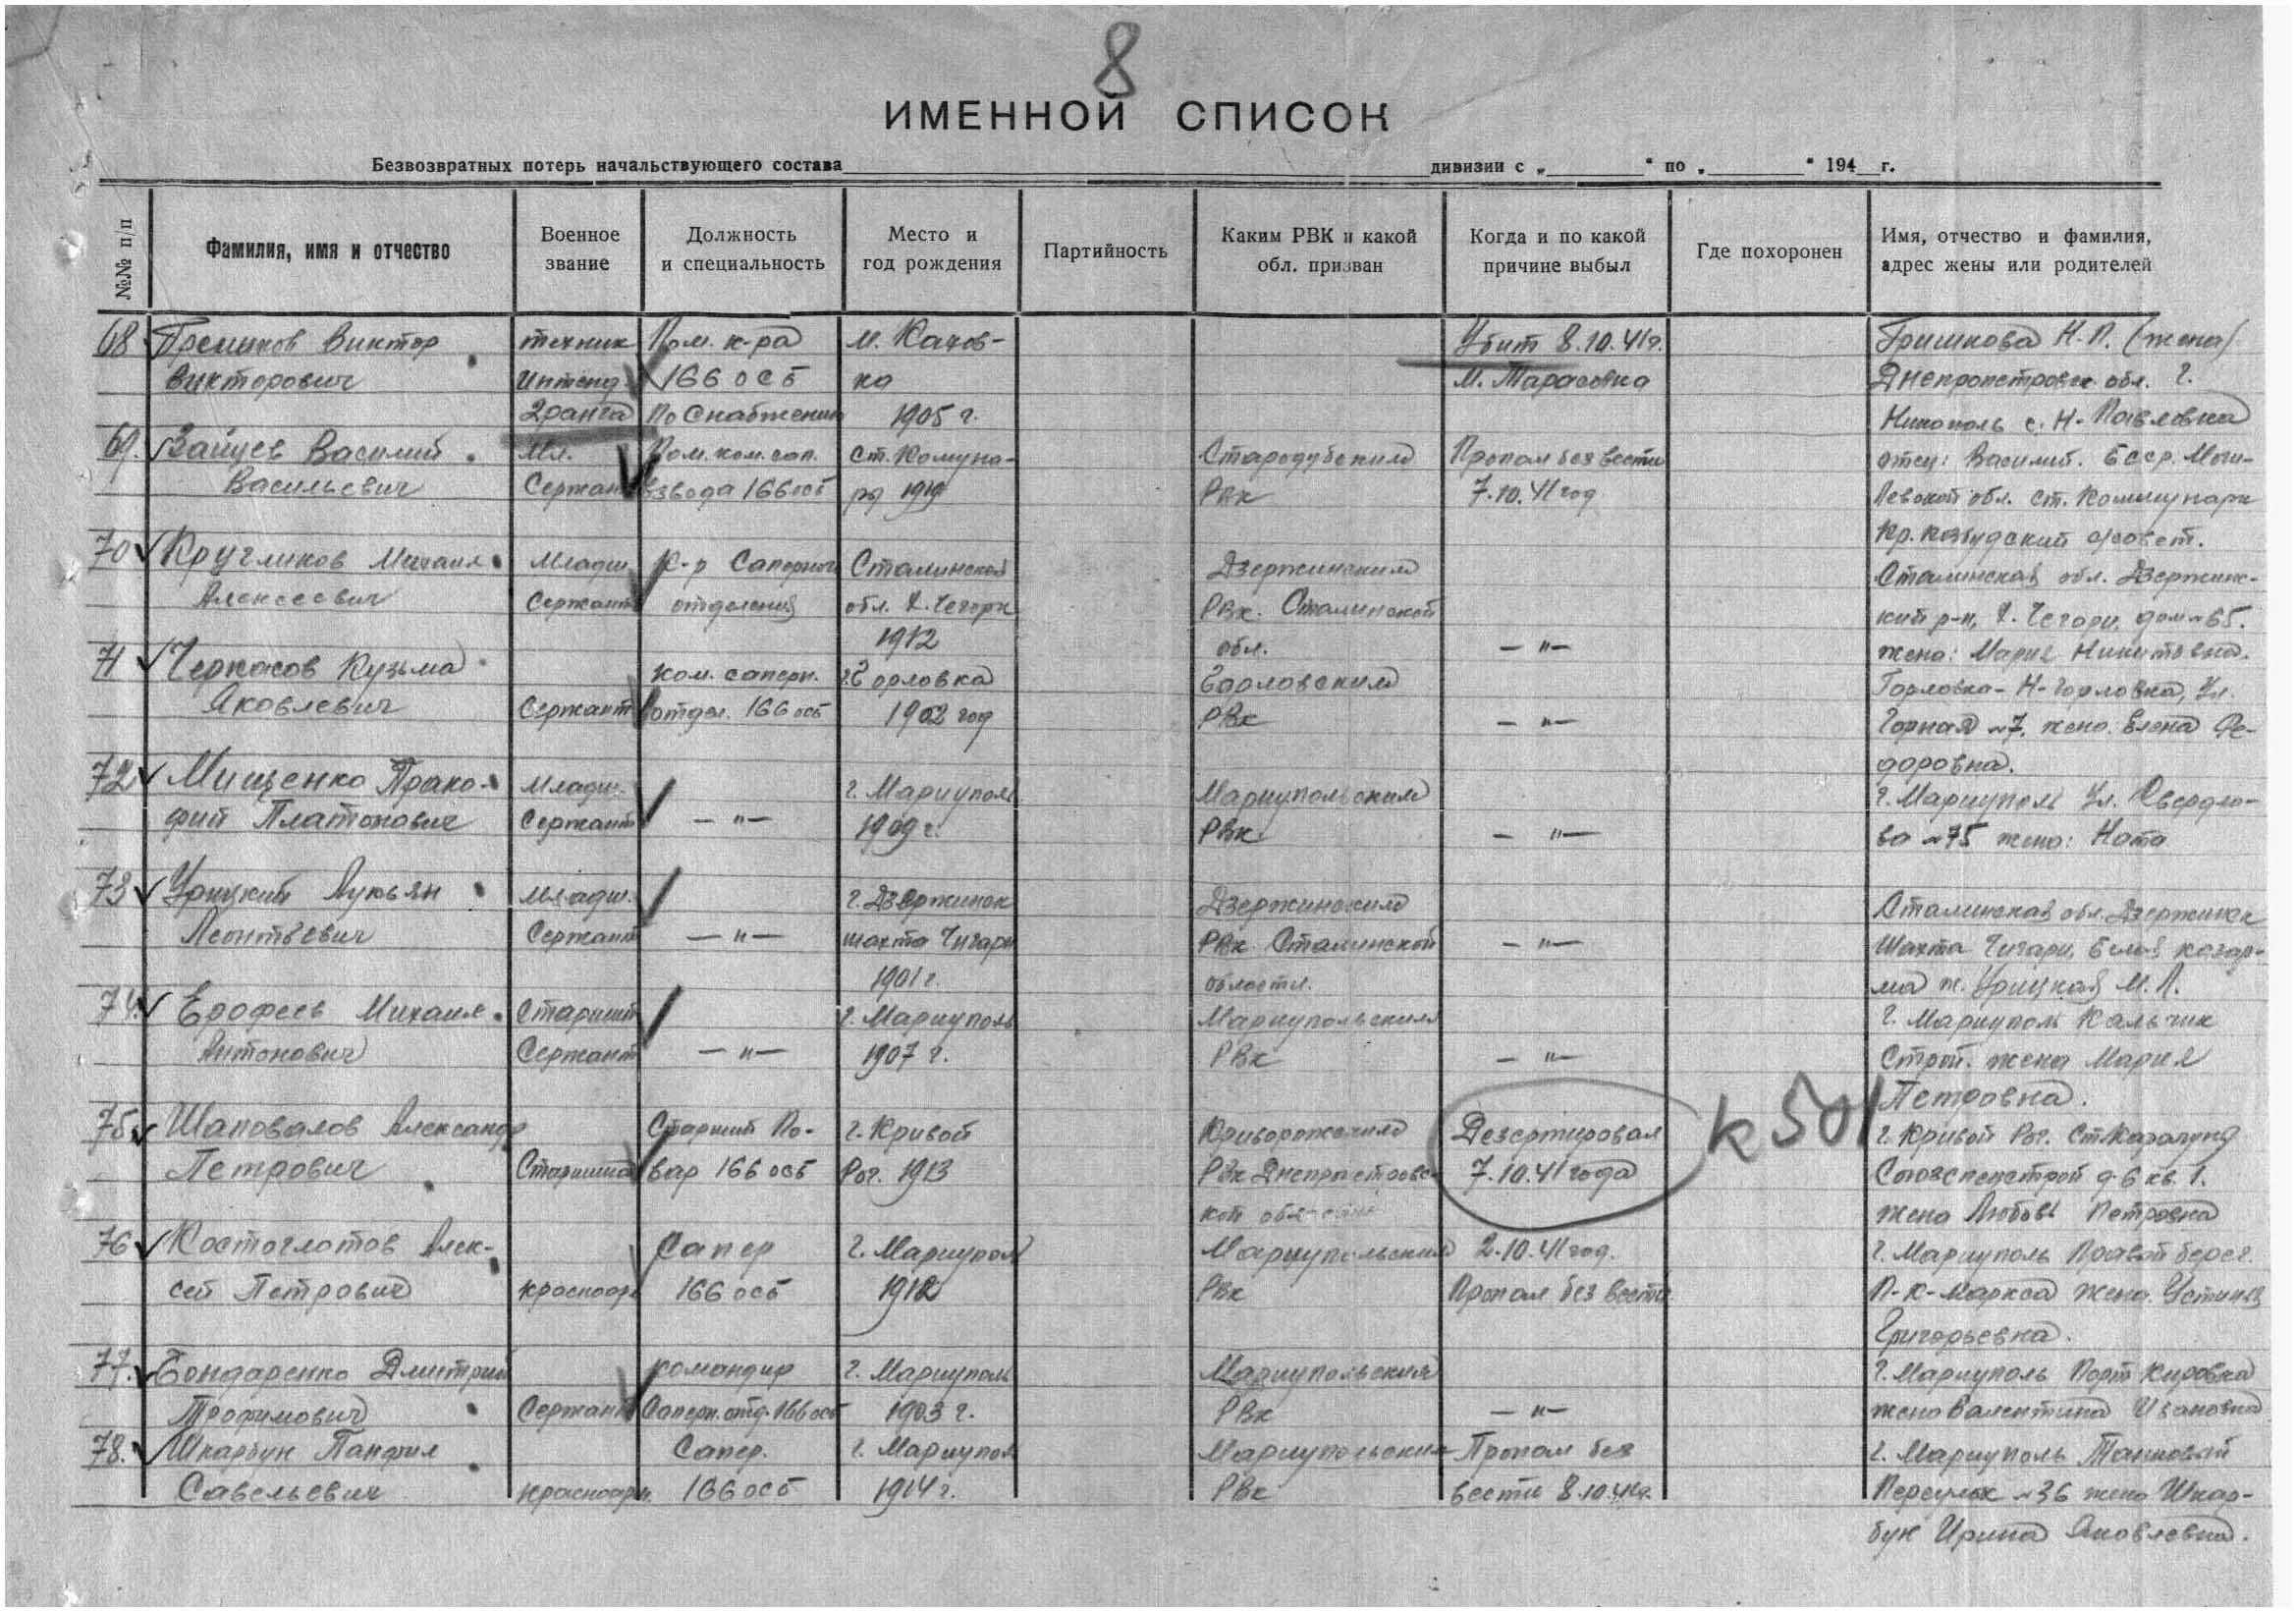 8
ИМЕННОЙ СПИСОК
Безвозвратных потерь начальствующего состава дивизии с „ “ по „ “ 194 г.
№№ п/п
Фамилия, имя и отчество
Военное звание
Должность и специальность
Место и год рождения
Партийность
Каким РВК и какой обл. призван
Когда и по какой причине выбыл
Где похоронен
Имя, отчество и фамилия, адрес жены или родителей
68 Виктор техник Пом. к-ра м. Кахов- Убит 8.10.41г. Гришкова Н.П. (жена)
Викторович Интенд. 166 осб ка м. Тарасовка Днепропетровск. обл. г.
2 ранга по Снабжению 1905 г. Никополь с. Н-Павловка
69. Зайцев Василий Мл. Пом. ком. сап. ст. Комуна- Стародубским Пропал без вести отец: Василий. Бсср. Моги-
Васильевич Сержант взвода 166 осб ры 1919 РВК 7.10.41 год левской обл. ст. Коммунары
70 Кругликов Михаил Младш. к-р Саперного Сталинской Дзержинским
Сталинская обл. Дзержинс-
Алексеевич Сержант отделения обл. РВК. Сталинской
кий р-н, дом №65.
1912 обл. — „ — жена: Мария Никитовна.
71 Черкасов Кузьма ком. саперн. г. Горловка Горловским Горловка - Н-Горловка, Ул.
Яковлевич Сержант отдел. 166 осб 1902 год РВК — „ — Горная №7. жена: Елена Фе-
доровна.
72 Мищенко Прако- Младш. г. Мариуполь Мариупольским г. Мариуполь Ул. Свердло-
фий Платонович Сержант — „ — 1909 г. РВК — „ — ва №75 жена: Ната
73 Урицкий Лукьян Младш. г. Дзержинск Дзержинским Сталинская обл. Дзержинск
Леонтьевич Сержант — „ — шахта Чигари РВК Сталинской — „ — Шахта Чигари, Белая казар-
1901 г. области. ма ж. Урицкая М. Л.
74. Ерофеев Михаил Старший г. Мариуполь Мариупольским г. Мариуполь Кальчик
Антонович Сержант — „ — 1907 г. РВК — „ — Строй. жена Мария
Петровна.
75. Шаповалов Александр Старший По- г. Кривой Криворожским Дезертировал г. Кривой Рог.
Петрович Старшина вар 166 осб Рог. 1913 РВК Днепропетровс- 7.10.41 года Союзспецстрой д-6 кв. 1.
кой области жена Любовь Петровна
К 501
76 Костоглотов Алек- Сапер г. Мариуполь Мариупольским 2.10.41 год. г. Мариуполь Правой берег.
сей Петрович красноарм 166 осб 1912 РВК Пропал без вести П-К-Маркса жена. Устинья
Григорьевна.
77. Бондаренко Дмитрий командир г. Мариуполь Мариупольским г. Мариуполь Порт Кировка
Трофимович Сержант Саперн. отд. 166 осб 1903 г. РВК — „ — жена Валентина Ивановна
78. Шкарбун Панфил Сапер. г. Мариуполь Мариупольским Пропал без г. Мариуполь
Савельевич красноарм. 166 осб 1914 г. РВК вести 8.10.41г. Переулок №36 жена Шкар-
бун Ирина Яковлевна.